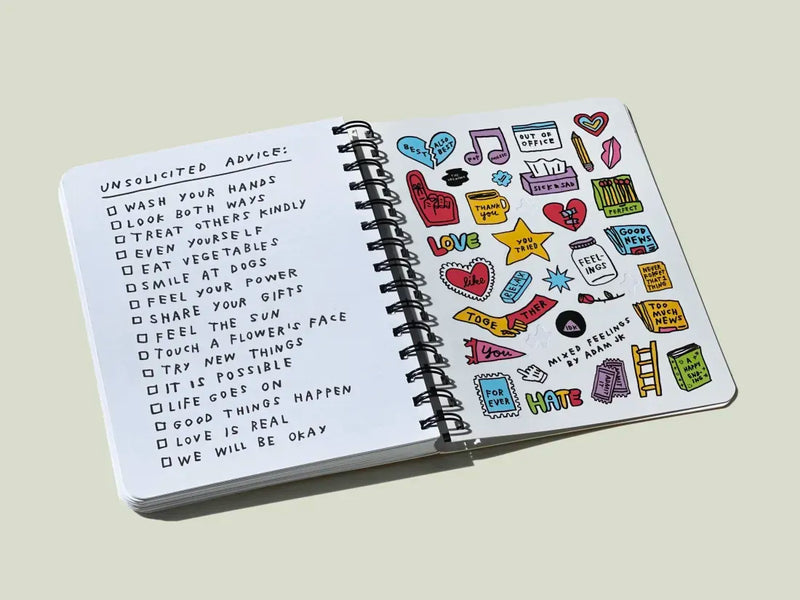 UNSOLICITED ADVICE:
WASH YOUR HANDS
LOOK BOTH WAYS
TREAT OTHERS KINDLY
EVEN YOURSELF
EAT VEGETABLES
SMILE AT DOGS
FEEL YOUR POWER
SHARE YOUR GIFTS
FEEL THE SUN
TOUCH A FLOWER'S FACE
TRY NEW THINGS
IT IS POSSIBLE
LIFE GOES ON
GOOD THINGS HAPPEN
LOVE IS REAL
WE WILL BE OKAY
BEST
ALSO
BEST
OUT OF
OFFICE
SICK & SAD
THANK
YOU
PERFECT
LOVE
YOU
TRIED
FEEL-
INGS
GOOD
NEWS
like
RELAX
NEVER
FORGET
THAT 1
THING
TOGE
THER
IDK
TOO
MUCH
NEWS
You
MIXED FEELINGS
BY ADAM JK
FOR
EVER
HATE
A
HAPPY
END-
ING